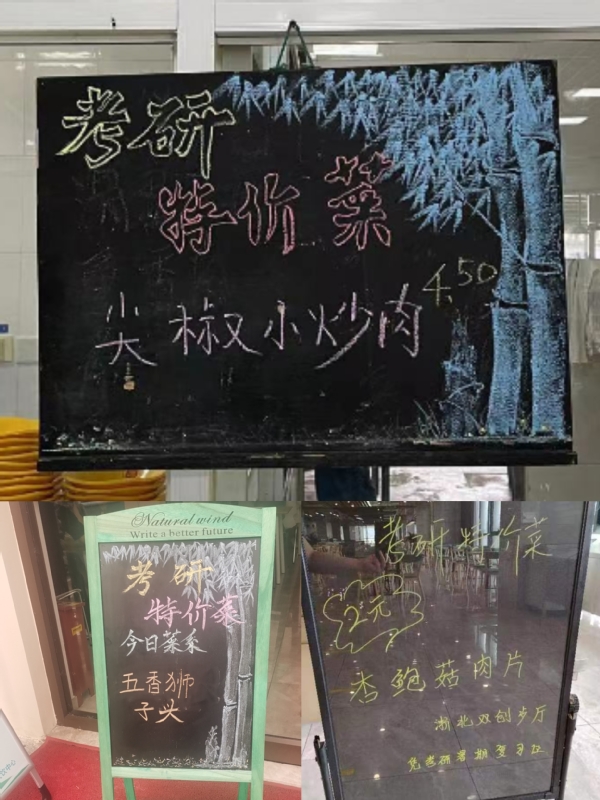 考研
特价菜
尖椒小炒肉 4.50
Natural wind
Write a better future
考研
特价菜
今日菜系
五香狮
子头
考研特价菜
2元
杏鲍菇肉片
湖北双创步厅